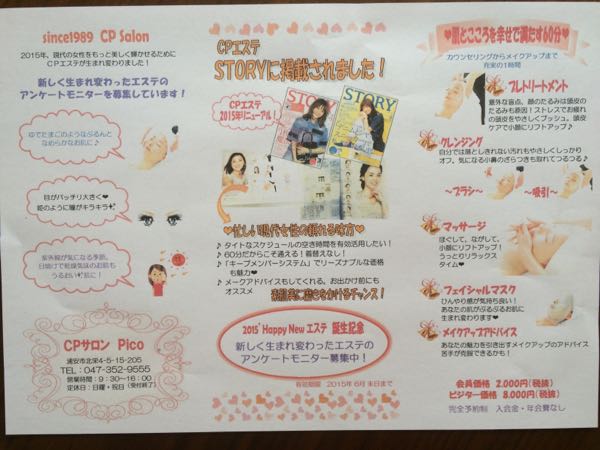 since1989 CP Salon
2015年、現代の女性をもっと美しく輝かせるために
CPエステが生まれ変わりました！
新しく生まれ変わったエステの
アンケートモニターを募集しています！
ゆでたまごのようなぷるんと
なめらかなお肌に♪
目がパッチリ大きく♥
姫のように瞳がキラキラ
紫外線が気になる季節。
日焼けで乾燥気味のお肌も
うるおい肌に！
CPサロン Pico
浦安市北栄4-5-15-205
TEL：047-352-9555
営業時間：9：30～16：00
定休日：日曜・祝日（受付終了）
CPエステ
STORYに掲載されました！
CPエステ
2015年リニューアル！
STORY
STORY
♥忙しい現代女性の頼れる味方♥
♪ タイトなスケジュールの空き時間を有効活用したい！
♪ 60分だからこそ通える！着替えなし！
♪ 「キープメンバーシステム」でリーズナブルな価格
も魅力♥
♪ メークアドバイスもしてくれる。お出かけ前にも
オススメ
素肌美に磨きをかけるチャンス！
2015' Happy New エステ 誕生記念
新しく生まれ変わったエステの
アンケートモニター募集中！
有効期限 2015年6月末日まで
♥肌とこころを幸せで満たす60分♥
カウンセリングからメイクアップまで
充実の1時間
プレトリートメント
意外な盲点、顔のたるみは頭皮の
たるみも原因！ストレスでお疲れ
の頭皮をやさしくプッシュ。頭皮
ケアで小顔にリフトアップ♪
クレンジング
自分では落としきれない汚れもやさしくしっかり
オフ。気になる小鼻のざらつきも取れてつるつる♪
～ブラシ～ ～吸引～
マッサージ
ほぐして、ながして、
小顔にリフトアップ！
うっとりリラックス
タイム♥
フェイシャルマスク
ひんやり感が気持ち良い！
あなたの肌がぷるぷるお肌に
生まれ変わります♥
メイクアップアドバイス
あなたの魅力を引き出すメイクアップのアドバイス
苦手が克服できるかも！
会員価格 2,000円（税抜）
ビジター価格 8,000円（税抜）
完全予約制 入会金・年会費なし